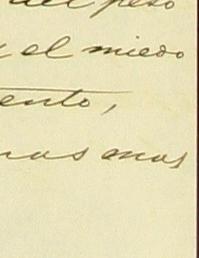 del peso
y el miedo
ento,
nas mas